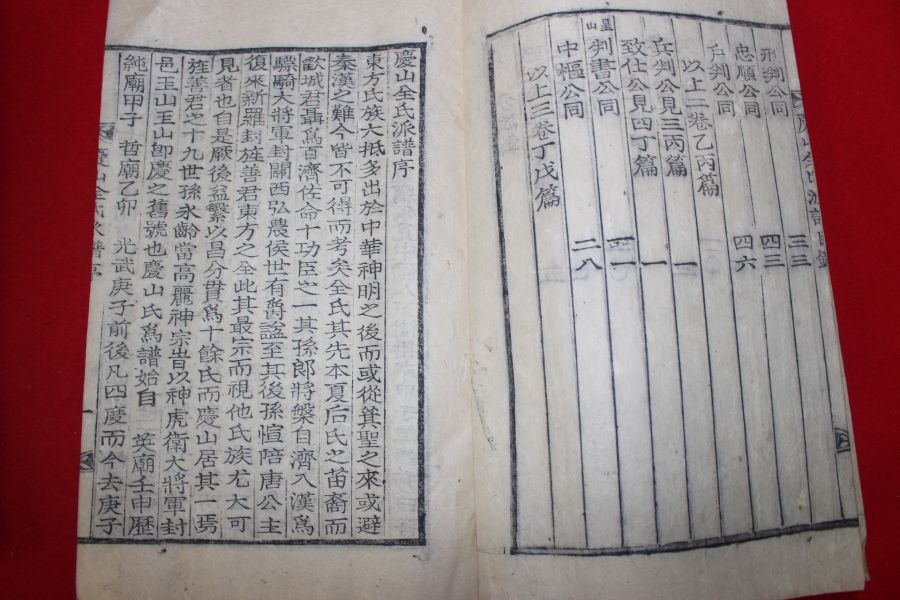 慶山全氏派譜目錄
刑判公同 三三
忠順公同 四三
戶判公同 四六
以上二卷乙丙篇
兵判公見三丙篇 一
致仕公見四丁篇 一
星山
判書公同 一一
中樞公同 二八
以上三卷丁戊篇
慶山全氏派譜序
東方氏族大抵多出於中華神明之後而或從箕聖之來或避
秦漢之難今皆不可得而考矣全氏其先本夏后氏之苗裔而
歡城君聶爲百濟佐命十功臣之一其孫郎將槃自濟入漢爲
驃騎大將軍封關西弘農侯世有爵諡至其後孫愃陪唐公主
復來新羅封旌善君東方之全此其最宗而視他氏族尤大可
見者也自是厥後益繁以昌分貫爲十餘氏而慶山居其一焉
旌善君之十九世孫永齡當高麗神宗旹以神虎衛大將軍封
邑玉山玉山卽慶之舊號也慶山氏爲譜始自 英廟壬申歷
純廟甲子 哲廟乙卯 光武庚子前後凡四度而今去庚子
慶山全氏派譜序 一